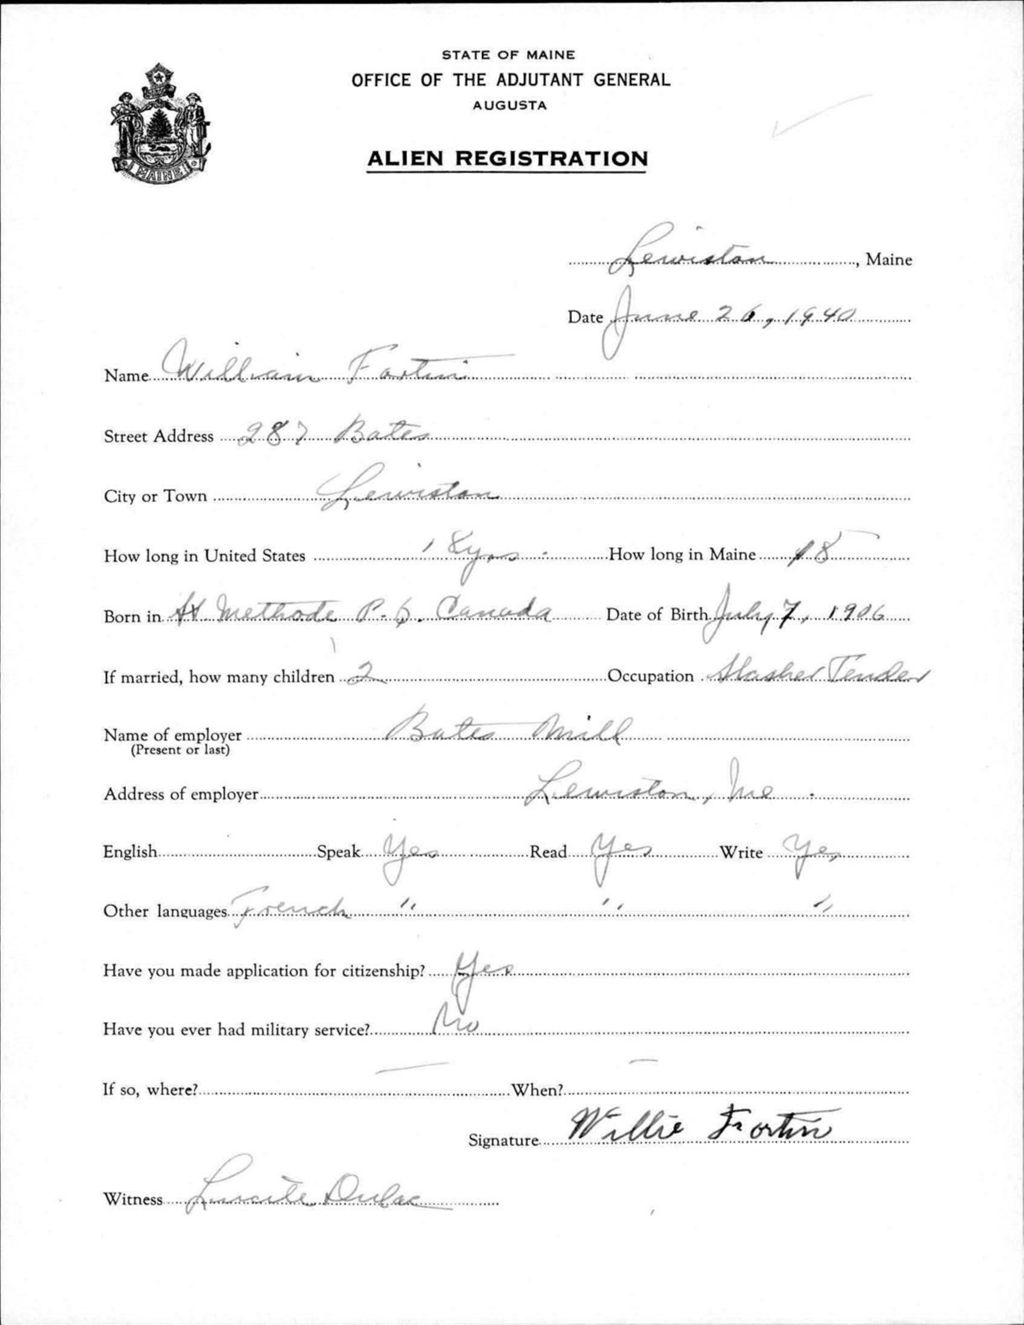 STATE OF MAINE
OFFICE OF THE ADJUTANT GENERAL
AUGUSTA
ALIEN REGISTRATION
MAINE
Lewiston, Maine
Date June 26, 1940
Name William Fortin
Street Address 287 Bates
City or Town Lewiston
How long in United States 18 yrs. How long in Maine 18
Born in St Methode P. Q. Canada Date of Birth July 7, 1906
If married, how many children 2 Occupation Slasher Tender
Name of employer Bates Mill
(Present or last)
Address of employer Lewiston, Me.
English Speak Yes Read Yes Write Yes
Other languages French " " "
Have you made application for citizenship? Yes
Have you ever had military service? No
If so, where? — When? —
Signature Willie Fortin
Witness Lucile Dulac